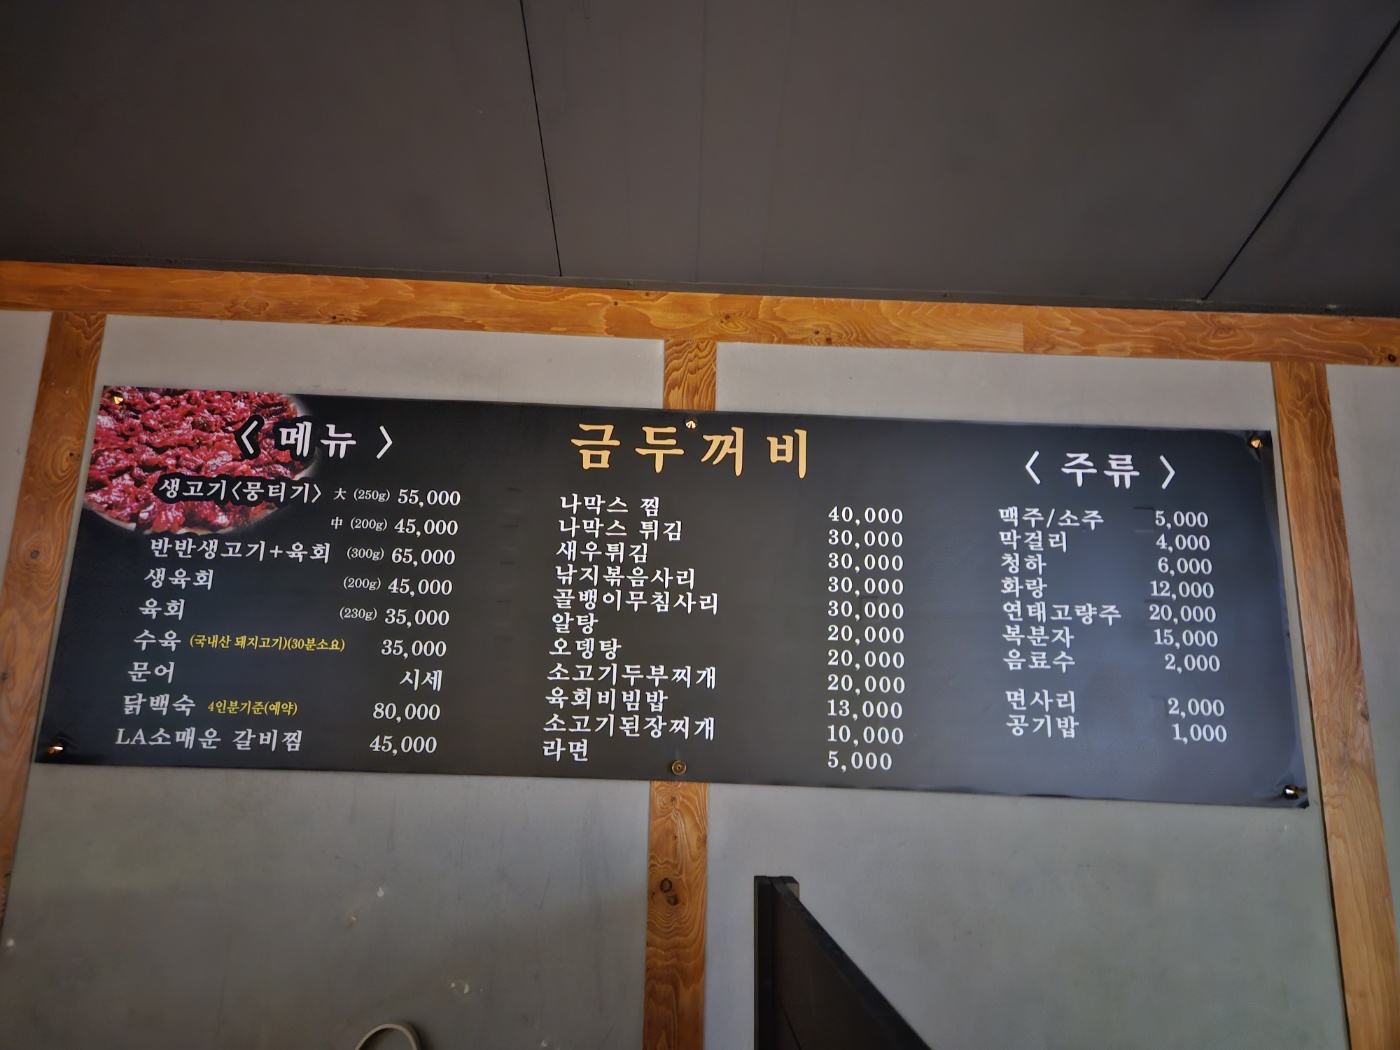 금두꺼비
〈 메뉴 〉
생고기〈뭉티기〉 大 (250g) 55,000
中 (200g) 45,000
반반생고기+육회 (300g) 65,000
생육회 (200g) 45,000
육회 (230g) 35,000
수육 (국내산 돼지고기)(30분소요) 35,000
문어 시세
닭백숙 4인분기준(예약) 80,000
LA소매운 갈비찜 45,000
나막스 찜 40,000
나막스 튀김 30,000
새우튀김 30,000
낚지볶음사리 30,000
골뱅이무침사리 30,000
알탕 20,000
오뎅탕 20,000
소고기두부찌개 20,000
육회비빔밥 13,000
소고기된장찌개 10,000
라면 5,000
〈 주류 〉
맥주/소주 5,000
막걸리 4,000
청하 6,000
화랑 12,000
연태고량주 20,000
복분자 15,000
음료수 2,000
면사리 2,000
공기밥 1,000